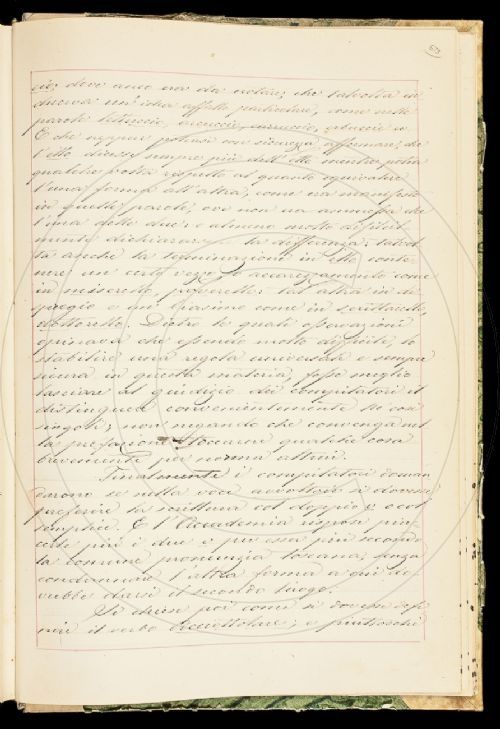 cio; deve anco ora da notare; che talvolta in
duceva un'idea affatto particolare, come nelle
parole lettuccio,
E che neppure potevasi con sicurezza affermare, che
l'etto dicesse sempre più dell'
qualche volta rispetto al quanto equivalere
l'una forma all'altra, come era manifesto
in quelle parole, ove non
l'una delle due; o almeno molto difficil-
mente dichiarare la differenza: talvol
ta anche la terminazione in etto conte
nere un certo vezzo, o accarezzamento come
in miseretto, poveretto; tal'altra in di
spregio e un biasimo come in
dottoretto. Dietro le quali osservazioni
opinava che essendo molto difficile, lo
stabilire una regola universale e sempre
sicura in questa materia, fosse meglio
lasciare al giudizio dei compilatori il
distinguere convenientemente ne' casi
singoli; non negando che convenga nel
la prefazione toccarne qualche cosa
brevemente per norma altrui.
Finalmente i compilatori doman
darono se nella voce avvoltoio si dovesse
preferire la scrittura col doppio, o col
semplice. E l'Accademia rispose pia-
cerle più i due v per essa più secondo
la comune pronunzia toscana; senza
condannare l'altra forma a cui do-
vrebbe darsi il secondo luogo.
Si chiese poi come si dovesse defi
nire il verbo; e piuttosto che